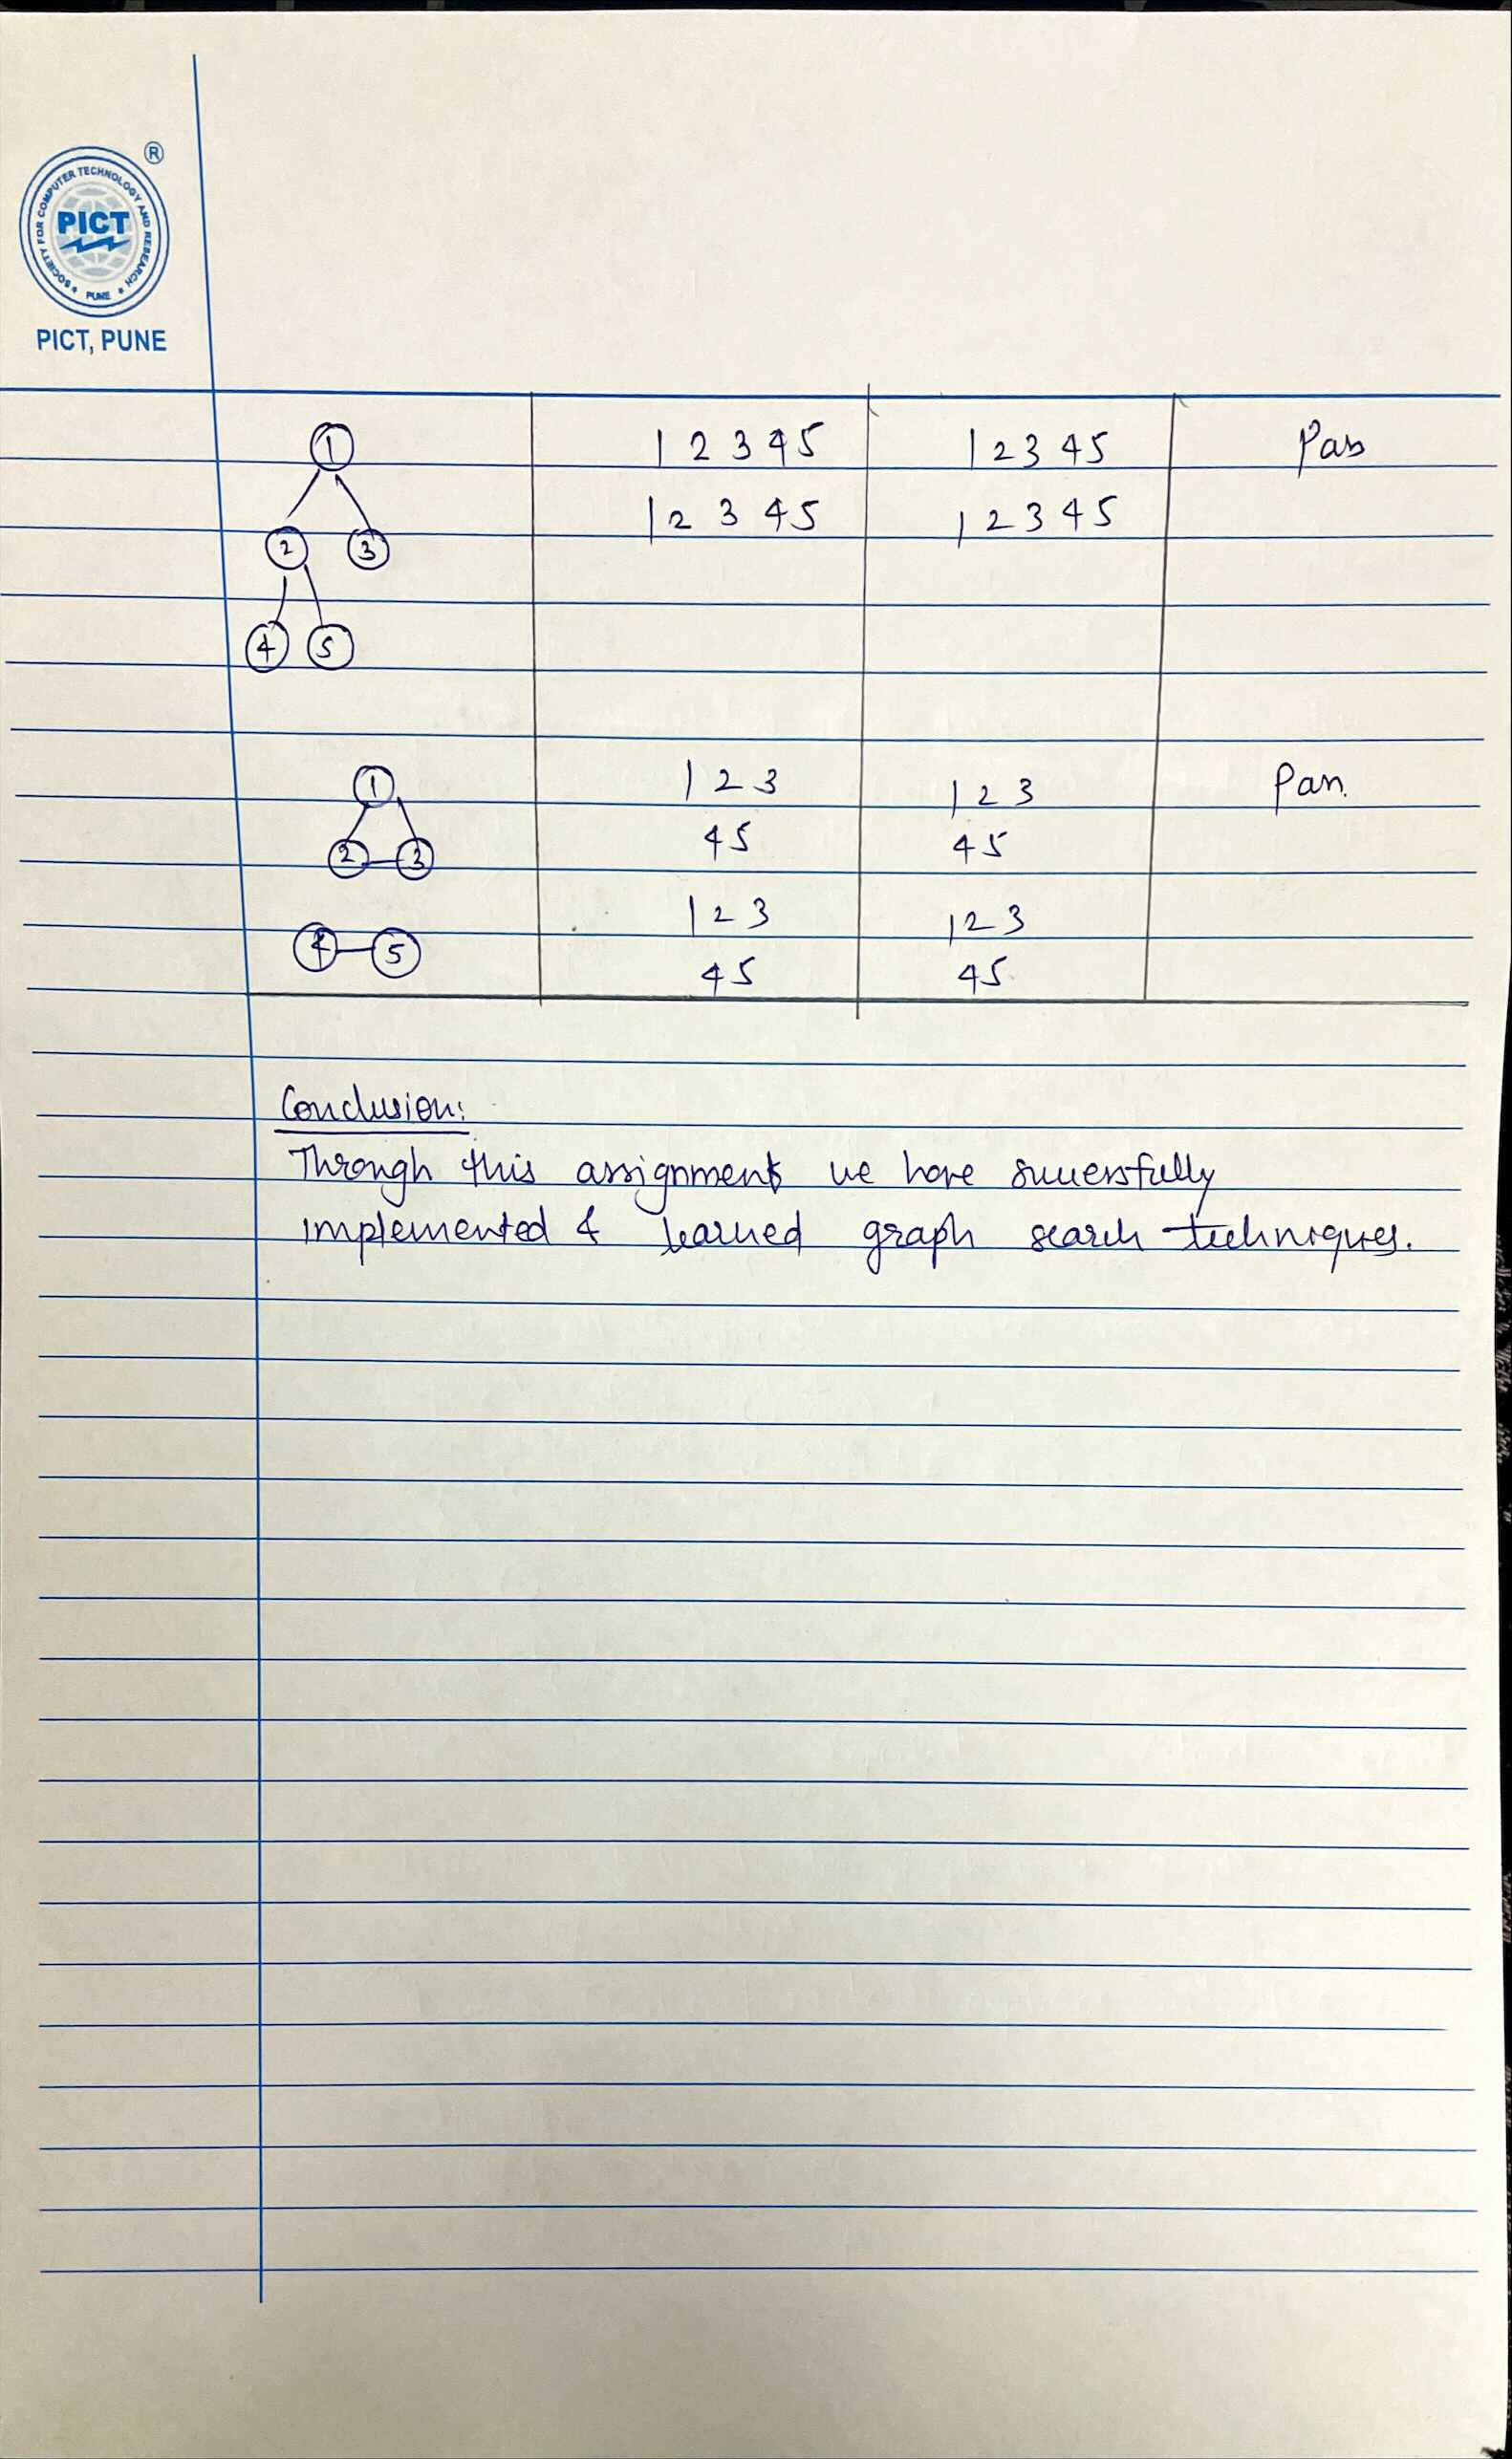 ®
SOCIETY FOR COMPUTER TECHNOLOGY AND RESEARCH
PICT
PUNE
PICT, PUNE
1 1 2 3 4 5 1 2 3 4 5 Pass
1 2 3 4 5 1 2 3 4 5
2 3
4 5
1 1 2 3 1 2 3 Pass
4 5 4 5
2 3
1 2 3 1 2 3
4 5
4 5 4 5
Conclusion:
Through this assignment we have successfully
implemented & learned graph search techniques.